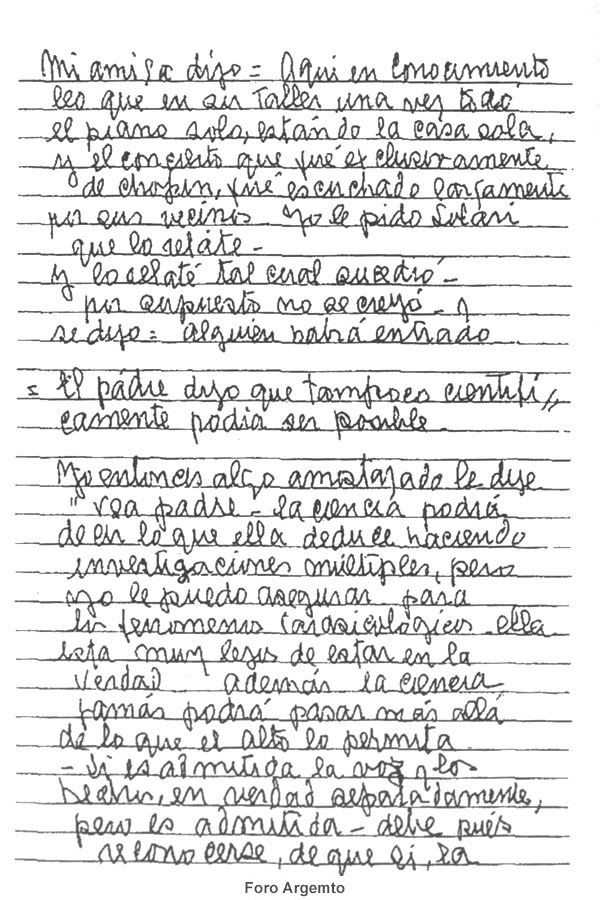 Mi amiga dijo = Aqui en Conocimiento
leo que en su Taller, una vez tocó
el piano solo, estándo la casa sola,
y el concierto que fué exclusivamente
de chopin, fué escuchado largamente
por sus vecinos Yo le pido Solari
que lo reláte -
y lo relaté tal cual sucedió -
por supuesto no se creyó - y
se dijo = alguien habrá entrado
= El pádre dijo que tampoco cientifi,,
camente podia ser posible -
Yo entonces algo amostazado le dije
" vea padre - la ciencia podrá
decir lo que ella deduce haciendo
investigaciones múltiples, pero
yo le puedo asegurar para
los fenomenos parasicológicos ella
esta muy lejos de estar en la
verdad además la ciencia
jamás podrá pasar más allá
de lo que el alto lo permita
- Si es admitida la voz y los
hechos, en verdad separadamente,
pero es admitida - debe pués
reconocerse, de que si, la
Foro Argemto